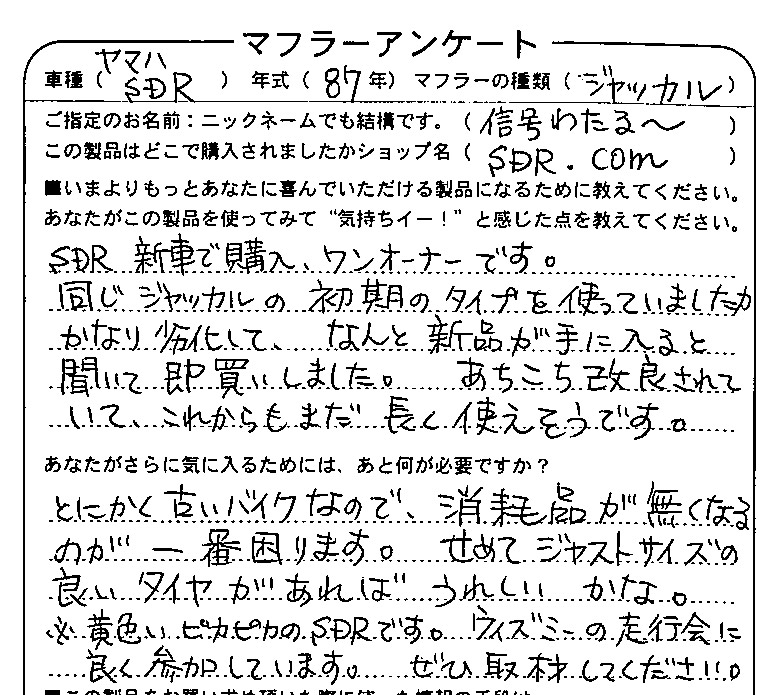 マフラーアンケート
ヤマハ
車種（ SDR ） 年式（ 87 年） マフラーの種類（ ジャッカル ）
ご指定のお名前：ニックネームでも結構です。（ 信号わたる〜 ）
この製品はどこで購入されましたかショップ名（ SDR.com ）
■いまよりもっとあなたに喜んでいただける製品になるために教えてください。
あなたがこの製品を使ってみて“気持ちイー！”と感じた点を教えてください。
SDR 新車で購入、ワンオーナーです。
同じジャッカルの初期のタイプを使っていましたが
かなり劣化して、なんと新品が手に入ると
聞いて即買いしました。 あちこち改良されて
いて、これからもまだ長く使えそうです。
あなたがさらに気に入るためには、あと何が必要ですか？
とにかく古いバイクなので、消耗品が無くなる
のが一番困ります。 せめてジャストサイズの
良いタイヤがあればうれしいかな。
※黄色いピカピカのSDRです。ウィズミーの走行会に
良く参加しています。 ぜひ取材してください。